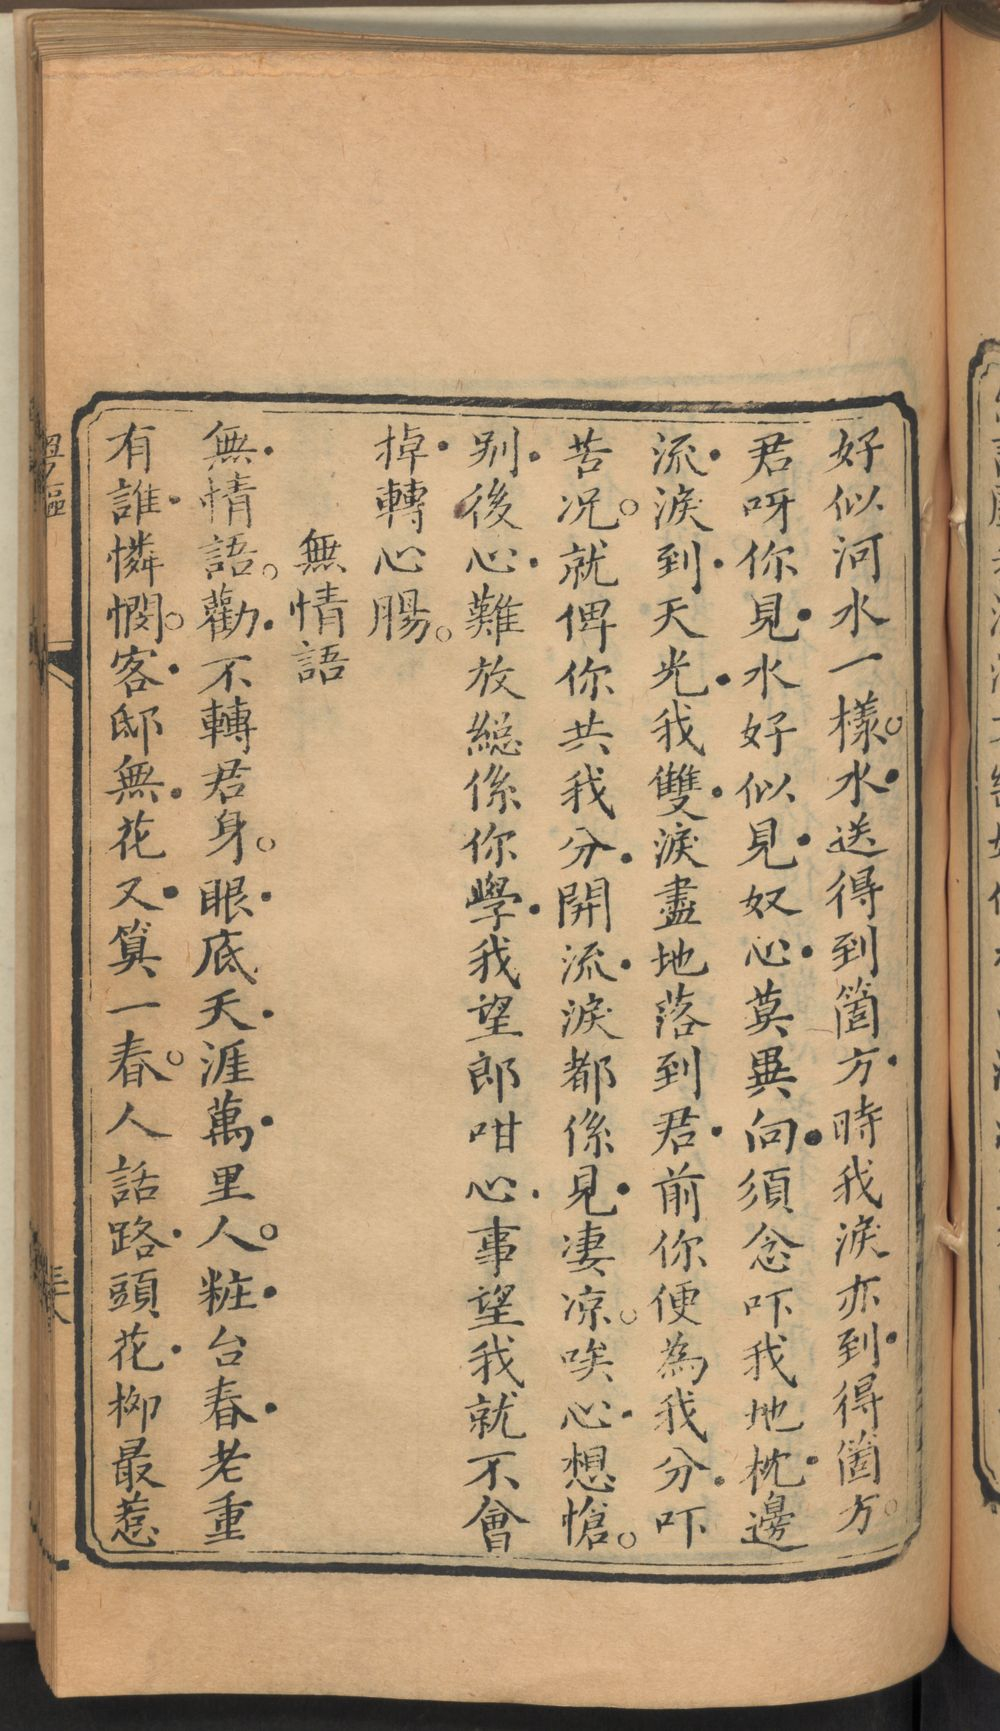 好似河水一樣。水送得到箇方時我淚亦到得箇方。
君呀你見水好似見奴心莫異向須念吓我地枕邊
流淚到天光我雙淚盡地落到君前你便為我分吓
苦况。就俾你共我分開流淚都係見凄凉。唉心想愴。
别後心難放総係你學我望郎咁心事望我就不會
掉轉心腸。
無情語
無情語。勸不轉君身。眼底天涯萬里人。粧台春老重
有誰憐憫。客邸無花又算一春。人話路頭花柳最惹
粤謳